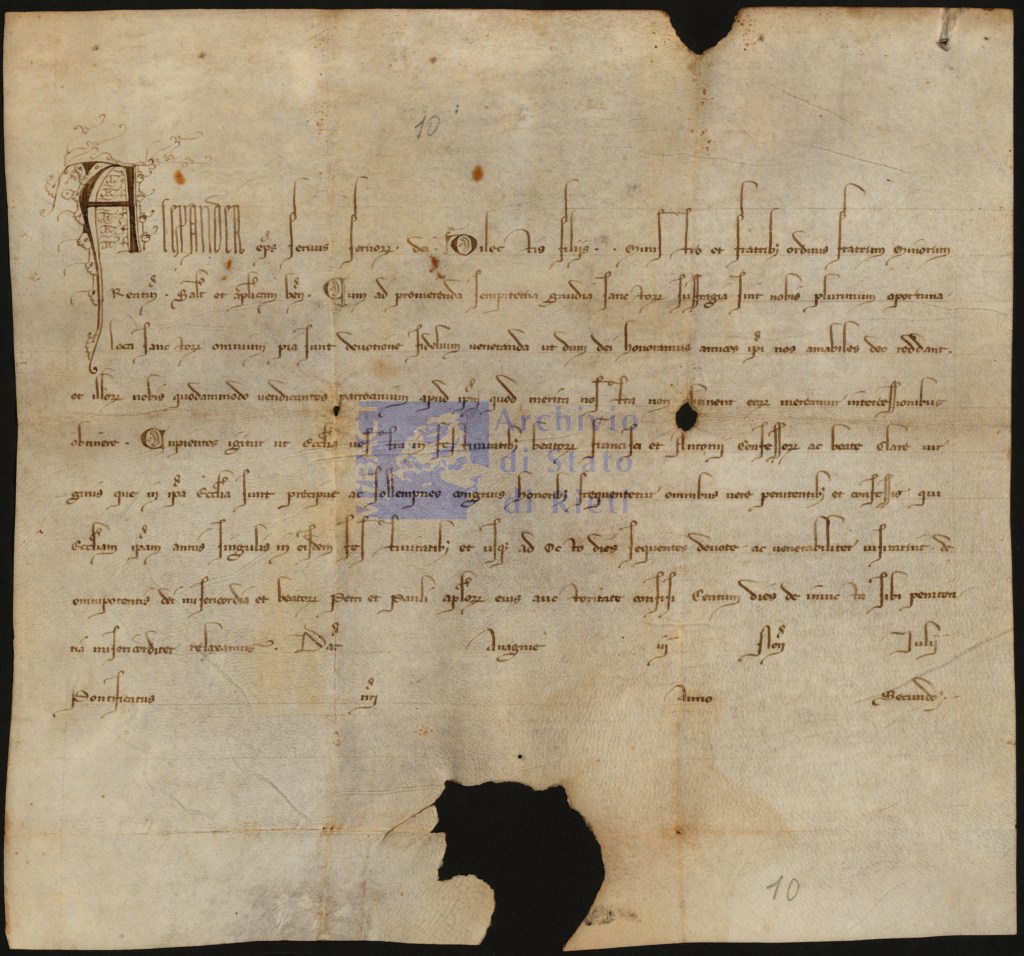 10
Alexander ep̄s servus servorꝝ dei. Dilectis filiis . . Ministro et fratribꝫ ordinis fratrum Minorum
Reatin̄. Salt̄ et aplicam ben̄. Cum ad promerenda sempiterna gaudia sanctorꝝ suffragia sint nobis plurimum oportuna
loca sanctorꝝ omnium pia sunt devotione fidelium veneranda ut dum dei honoramus amicos ip̄i nos amabiles deo reddant.
et illorꝝ nobis quodammodo vendicantes patrocinium apud ip̄m quod merita nostra non obtinent eorꝝ mereamur intercessionibus
obtinere. Cupientes igitur ut Ecclia vestra in festivitatibꝫ beatorꝝ francisci et Antonii Confessorꝝ ac beate Clare vir
ginis que in ip̄a Ecclia sunt precipue ac sollempnes congruis honoribꝫ frequentetur omnibus vere penitentibꝫ et confessis qui
Eccliam ip̄am annis singulis in eisdem festivitatibꝫ et usqꝫ ad Octo dies sequentes devote ac venerabiliter visitarint. de
omnipotentis dei misericordia et beatorꝝ Petri et Pauli aplorꝝ eius auctoritate confisi Centum dies de iniuncta sibi peniten
tia misericorditer relaxamus. Dat̄ Anagnie iij Non̄ Julij
Pontificatus nr̄i Anno Secundo.
Archivio
di Stato
di Rieti
10